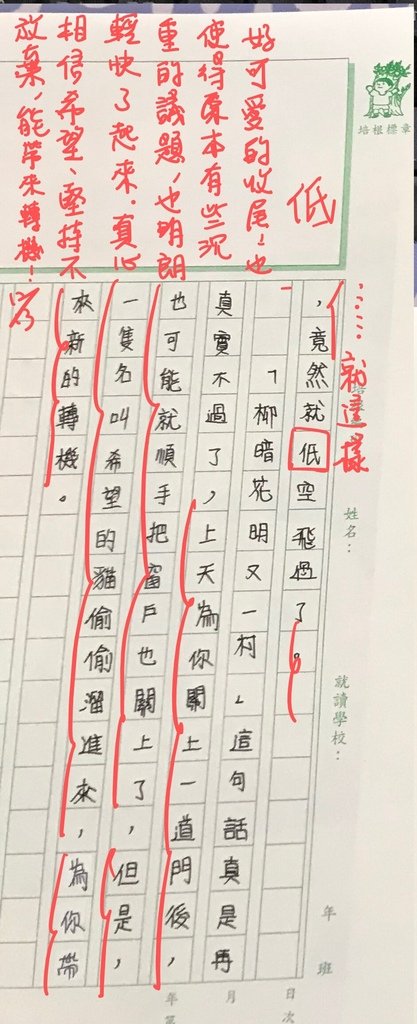 培根標章
姓名：
就讀學校：
年 班
年 月 日
第 次
……就這樣
，竟然就低空飛過了。
「柳暗花明又一村」這句話真是再
真實不過了，上天為你關上一道門後，
也可能就順手把窗戶也關上了，但是，
一隻名叫希望的貓偷偷溜進來，為你帶
來新的轉機。
低
好可愛的收尾！也
使得原本有些沉
重的議題，也明朗
輕快了起來。真心
相信希望、堅持不
放棄，能帶來轉機！